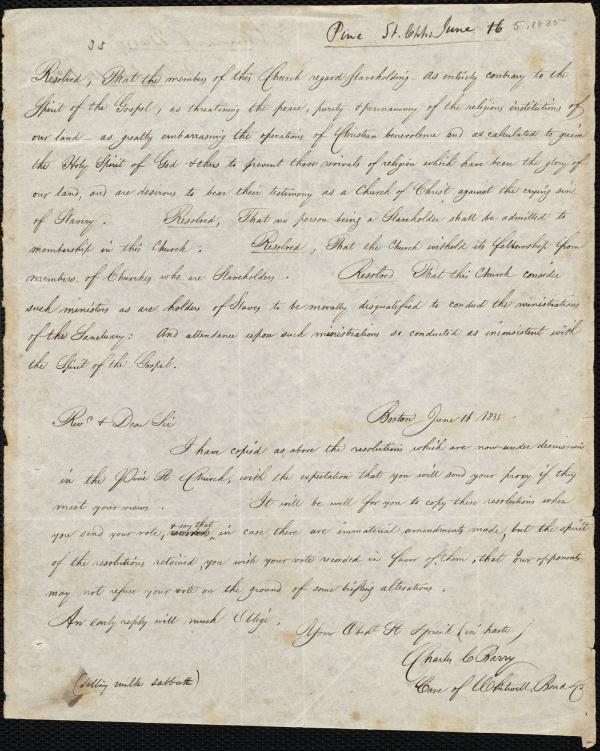 Pine St. Chh. June 16 5. 1835
38
Resolved, That the members of this Church regard slaveholding as entirely contrary to the
Spirit of the Gospel, as threatening the peace, purity & permanency of the religious institutions of
our land as greatly embarrassing the operations of Christian benevolence and as calculated to grieve
the Holy Spirit of God & thus to prevent those revivals of religion which have been the glory of
our land, and are desirous to bear their testimony as a Church of Christ against the crying sin
of Slavery. Resolved, That no person being a Slaveholder shall be admitted to
membership in this Church. Resolved, That the Church withold its fellowship from
members of Churches who are Slaveholders. Resolved That this Church consider
such ministers as are holders of Slaves to be morally disqualified to conduct the ministrations
of the Sanctuary: And attendance upon such ministrations so conducted as inconsistent with
the Spirit of the Gospel.
Revd & Dear Sir Boston June 16 1835
I have copied as above the resolutions which are now under discussion
in the Pine St Church, with the expectation that you will send your proxy if they
meet your views. It will be well for you to copy these resolutions when
you send your vote, & say that in case there are immaterial amendments made, but the spirit
of the resolutions retained, you wish your vote recorded in favor of them, that our opponents
may not refuse your vote on the ground of some trifling alterations.
An early reply will much Oblige.
Your Obdt St (in haste)
Charles C Barry
Care of Whitwell, Bond & Co
(selling milk sabbath)